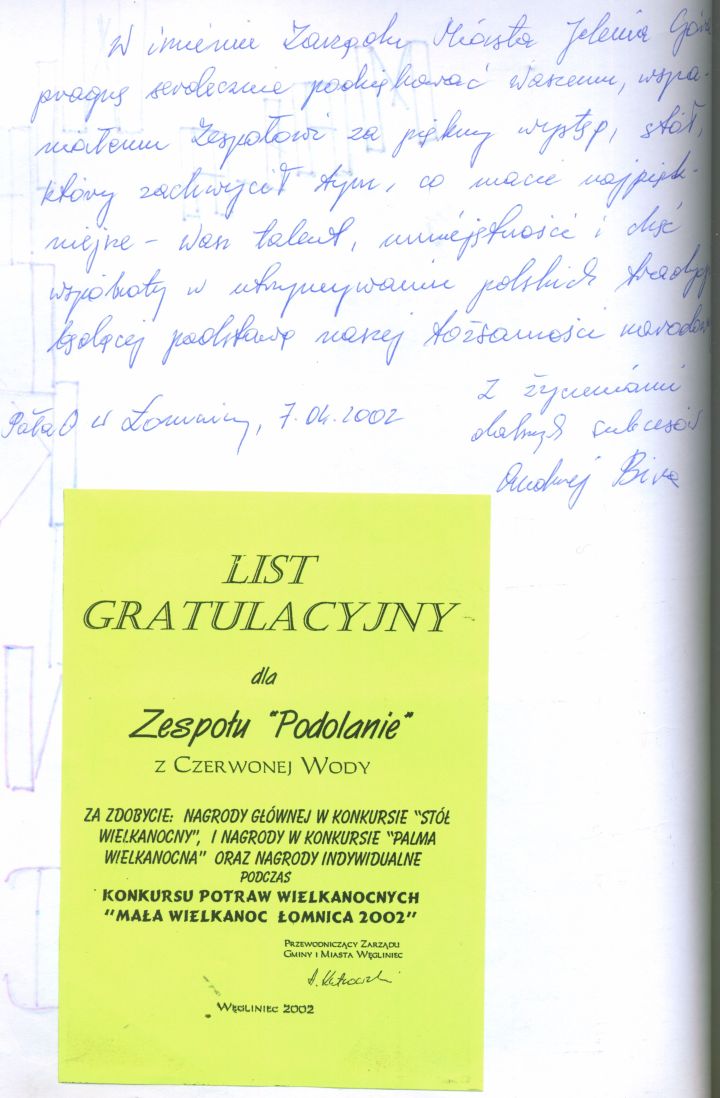 W imieniu Zarządu Miasta Jelenia Góra
pragnę serdecznie podziękować Waszemu, wspa-
niałemu Zespołowi za piękny występ, stół,
który zachwycił tym, co macie najpięk-
niejsze – Wasz talent, umiejętności i chęć
współpracy w utrzymywaniu polskich tradycji
będącej podstawą naszej tożsamości narodow
Z życzeniami
dalszych sukcesów
Pałac w Łomnicy, 7.04.2002
Andrzej
LIST
GRATULACYJNY
dla
Zespołu "Podolanie"
z Czerwonej Wody
ZA ZDOBYCIE: NAGRODY GŁÓWNEJ W KONKURSIE "STÓŁ
WIELKANOCNY", I NAGRODY W KONKURSIE "PALMA
WIELKANOCNA" ORAZ NAGRODY INDYWIDUALNE
PODCZAS
KONKURSU POTRAW WIELKANOCNYCH
"MAŁA WIELKANOC ŁOMNICA 2002"
Przewodniczący Zarządu
Gminy i Miasta Węgliniec
Węgliniec 2002